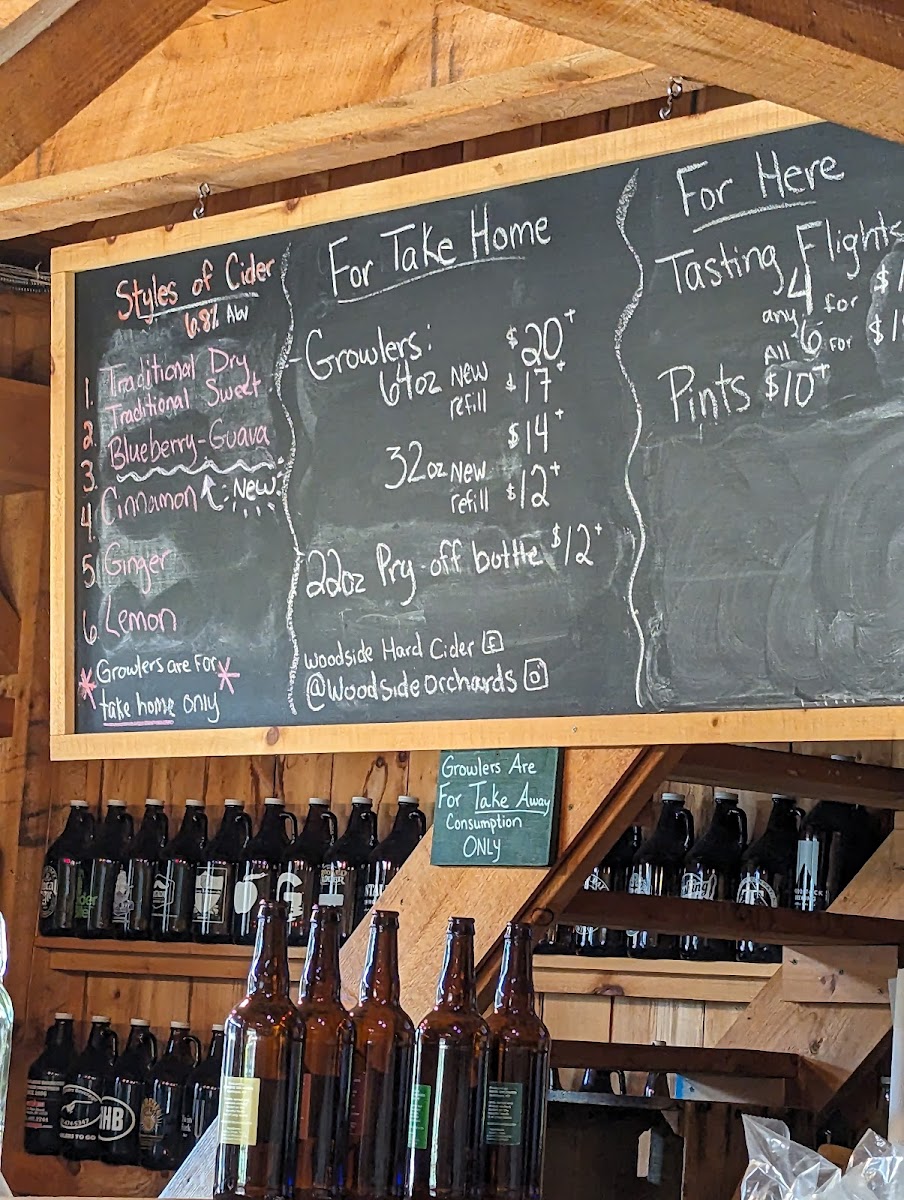 Styles of Cider
6.8% ABV
1. Traditional Dry
2. Traditional Sweet
3. Blueberry-Guava
4. Cinnamon New
5. Ginger
6. Lemon
* Growlers are for *
take home only
For Take Home
Growlers:
64oz New $20+
refill $17+
32oz New $14+
refill $12+
22oz Pry-off bottle $12+
Woodside Hard Cider
@Woodsideorchards
For Here
Tasting Flights
any 4 for
All 6 for
Pints $10+
Growlers Are
For Take Away
Consumption
ONLY
HB